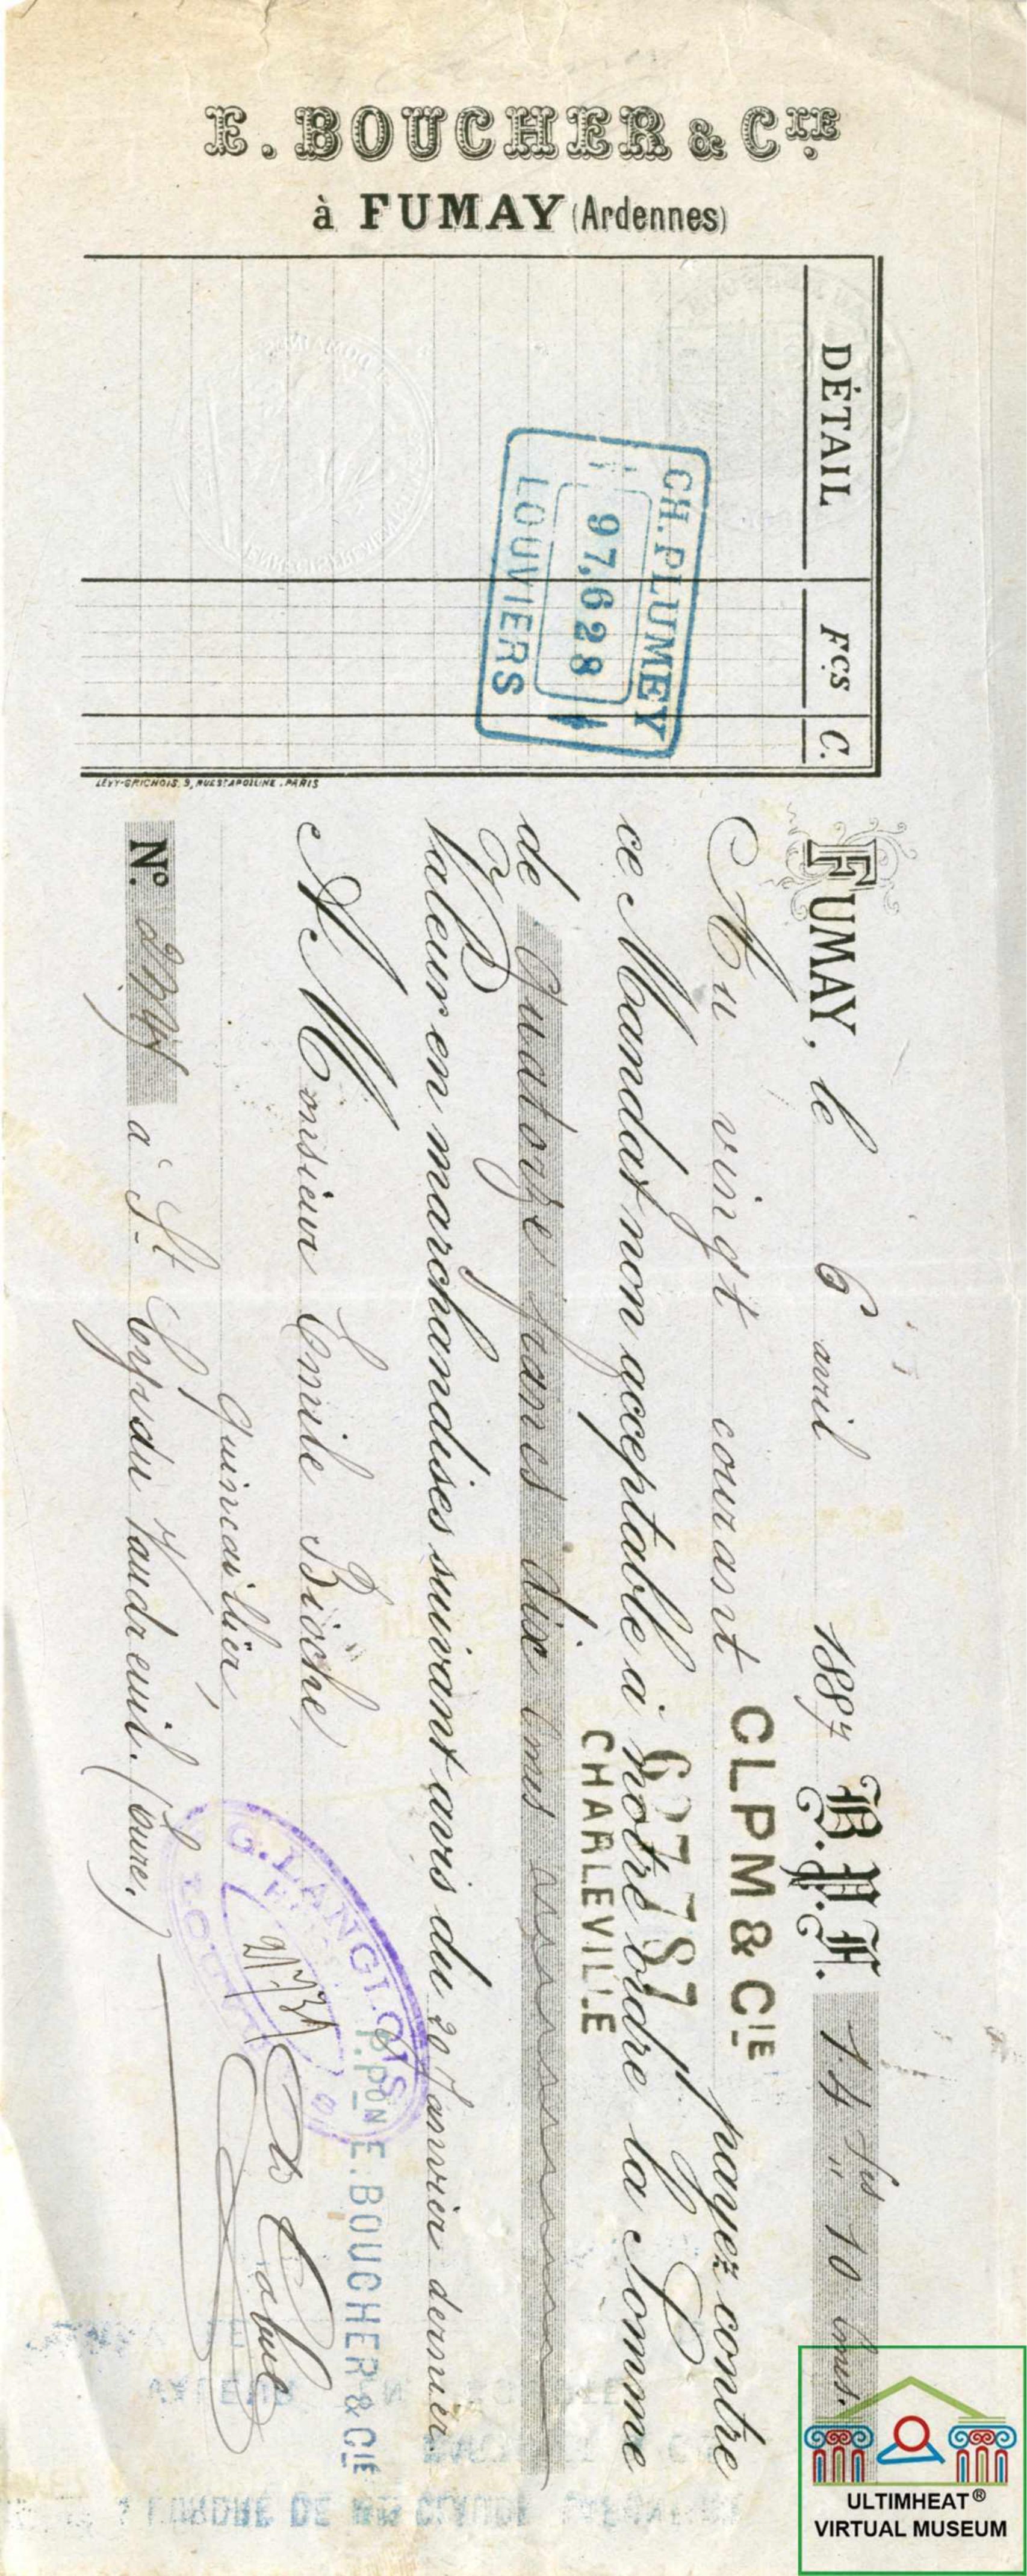 E. BOUCHER & CIE
à FUMAY (Ardennes)
DÉTAIL FCS C.
CH. PLUMEY
97,628
LOUVIERS
LÉVY-GRICHOIS, 9, RUE ST APOLLINE. PARIS
FUMAY, le 6 avril 1887 B.P.F. 14 fcs 10 cmes.
Au vingt courant payez contre
CLPM & CIE
ce Mandat non acceptable à notre ordre la Somme
67787
CHARLEVILLE
de Quatorze francs dix cmes
Valeur en marchandises suivant avis du 20 Janvier dernier
A Monsieur Emile Bioche,
Quincaillier,
No. à St Cyr du Vaudreuil. (Eure.)
G. LANGLOIS
P. PON E. BOUCHER & CIE
L'ORDRE DE CLAUDE
ULTIMHEAT®
VIRTUAL MUSEUM